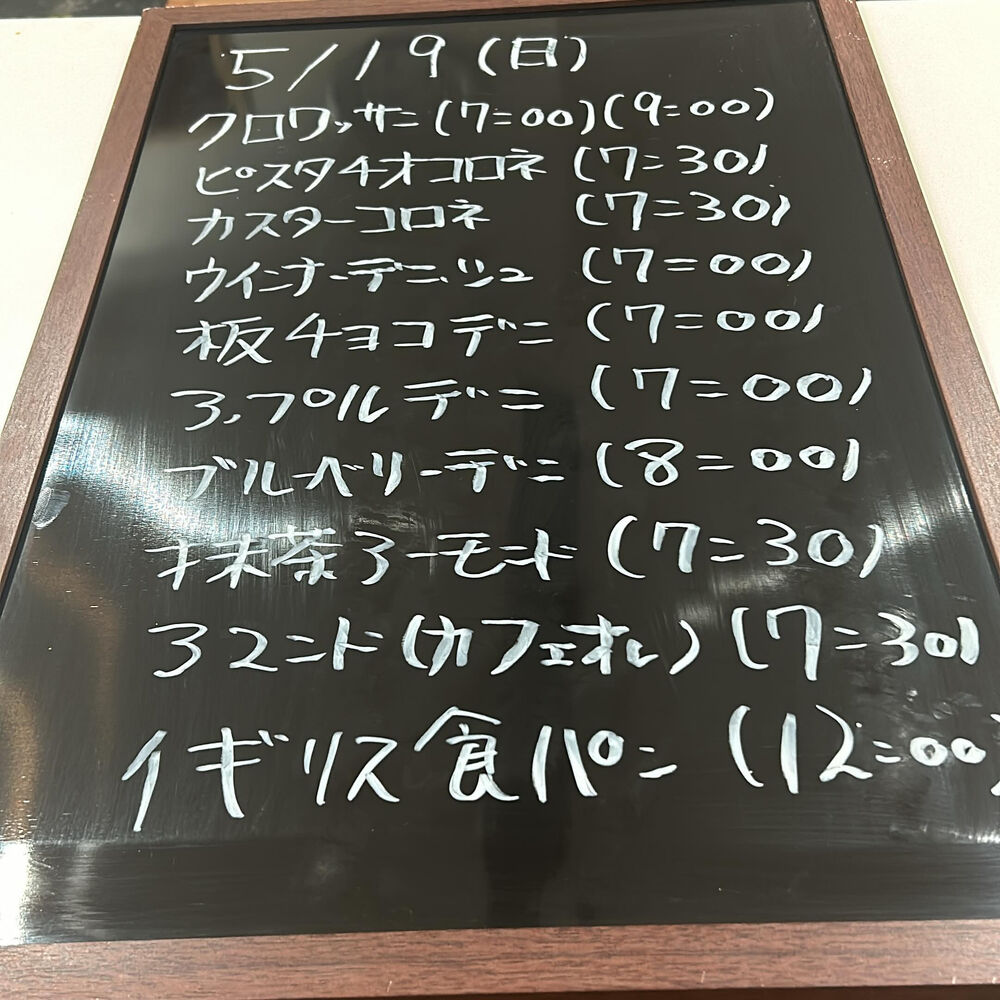 5/19(日)
クロワッサン(7:00)(9:00)
ピスタチオコロネ(7:30)
カスターコロネ (7:30)
ウインナーデニッシュ (7:00)
板チョコデニ (7:00)
アップルデニ (7:00)
ブルーベリーデニ (8:00)
抹茶アーモンド (7:30)
アマンド(カフェオレ)(7:30)
イギリス食パン (12:00)